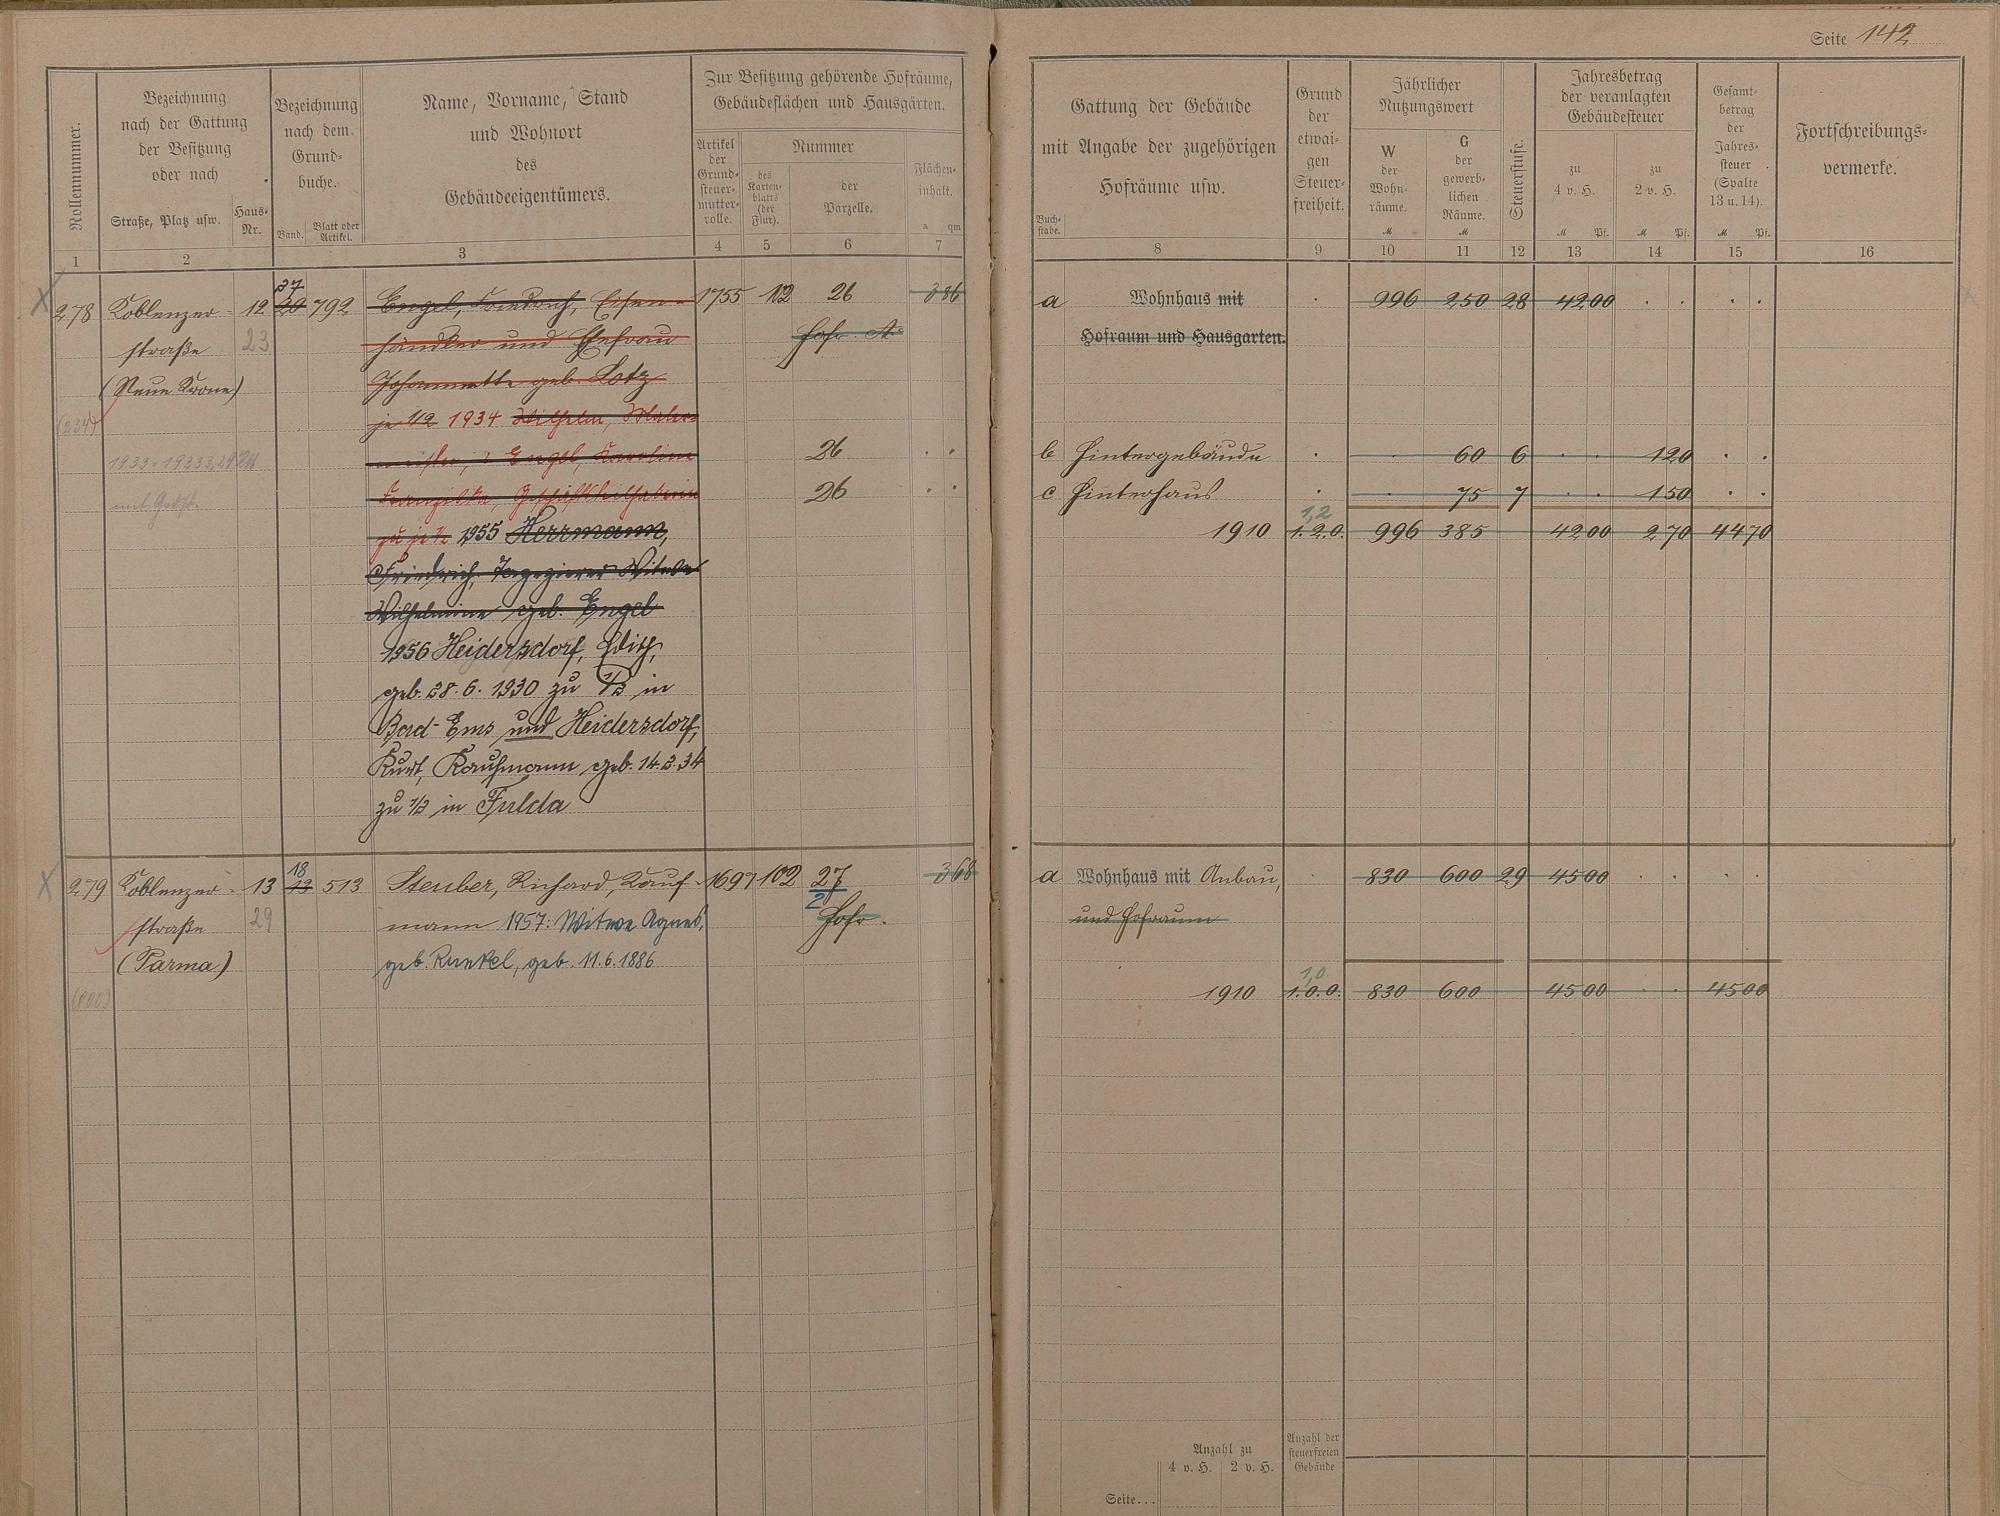 Seite 142
Rollennummer.
Bezeichnung
nach der Gattung
der Besitzung
oder nach
Straße, Platz usw.
Haus-
Nr.
Bezeichnung
nach dem
Grund-
buche.
Band.
Blatt oder
Artikel.
Name, Vorname, Stand
und Wohnort
des
Gebäudeeigentümers.
Zur Besitzung gehörende Hofräume,
Gebäudeflächen und Hausgärten.
Artikel
der
Grund-
steuer-
mutter-
rolle.
Nummer
des
Karten-
blatts
(der
Flur).
der
Parzelle.
Flächen-
inhalt.
a qm
1 2 3 4 5 6 7
278 Koblenzer- 12 37 20 792 Engel, Friedrich, Eisen- 1755 12 26 386
straße 23 händler und Ehefrau Hofr. A.
(Neue Krone) Johannette geb. Lotz
(234) je 1/2 1934 Wilhelm, Maler-
meister, Engel, Karoline 26 . .
26 . .
zu je 1/2 1955 Herrmann,
Friedrich, Tapezierer Witwe
Wilhelmine geb. Engel
1956 Heidersdorf, Edith,
geb. 28. 6. 1930 zu 1/2 in
Bad-Ems und Heidersdorf,
Kurt, Kaufmann geb. 14.2.34
zu 1/2 in Fulda
279 Koblenzer- 13 18 513 Steuber, Richard, Kauf- 1697 102 27 368
straße 29 mann 1957: Witwe Agnes, 2 Hofr.
(Parma) geb. Runkel, geb. 11.6.1886
(800)
Gattung der Gebäude
mit Angabe der zugehörigen
Hofräume usw.
Buch-
stabe.
Grund
der
etwai-
gen
Steuer-
freiheit.
Jährlicher
Nutzungswert
W
der
Wohn-
räume.
M
G
der
gewerb-
lichen
Räume.
M
Steuerstufe.
Jahresbetrag
der veranlagten
Gebäudesteuer
zu
4 v. H.
M Pf.
zu
2 v. H.
M Pf.
Gesamt-
betrag
der
Jahres-
steuer
(Spalte
13 u. 14).
M Pf.
Fortschreibungs-
vermerke.
8 9 10 11 12 13 14 15 16
a Wohnhaus mit . 996 250 28 42 00 . . . .
Hofraum und Hausgarten.
b Hintergebäude . . 60 6 . . 1 20 . .
c Hinterhaus . . 75 7 . . 1 50 . .
1,2
1910 1.2.0. 996 385 42 00 2 70 44 70
a Wohnhaus mit Anbau, . 830 600 29 45 00 . . . .
und Hofraum
1,0
1910 1.0.0. 830 600 45 00 . . 45 00
Anzahl zu
4 v. H. 2 v. H.
Anzahl der
steuerfreien
Gebäude
Seite...